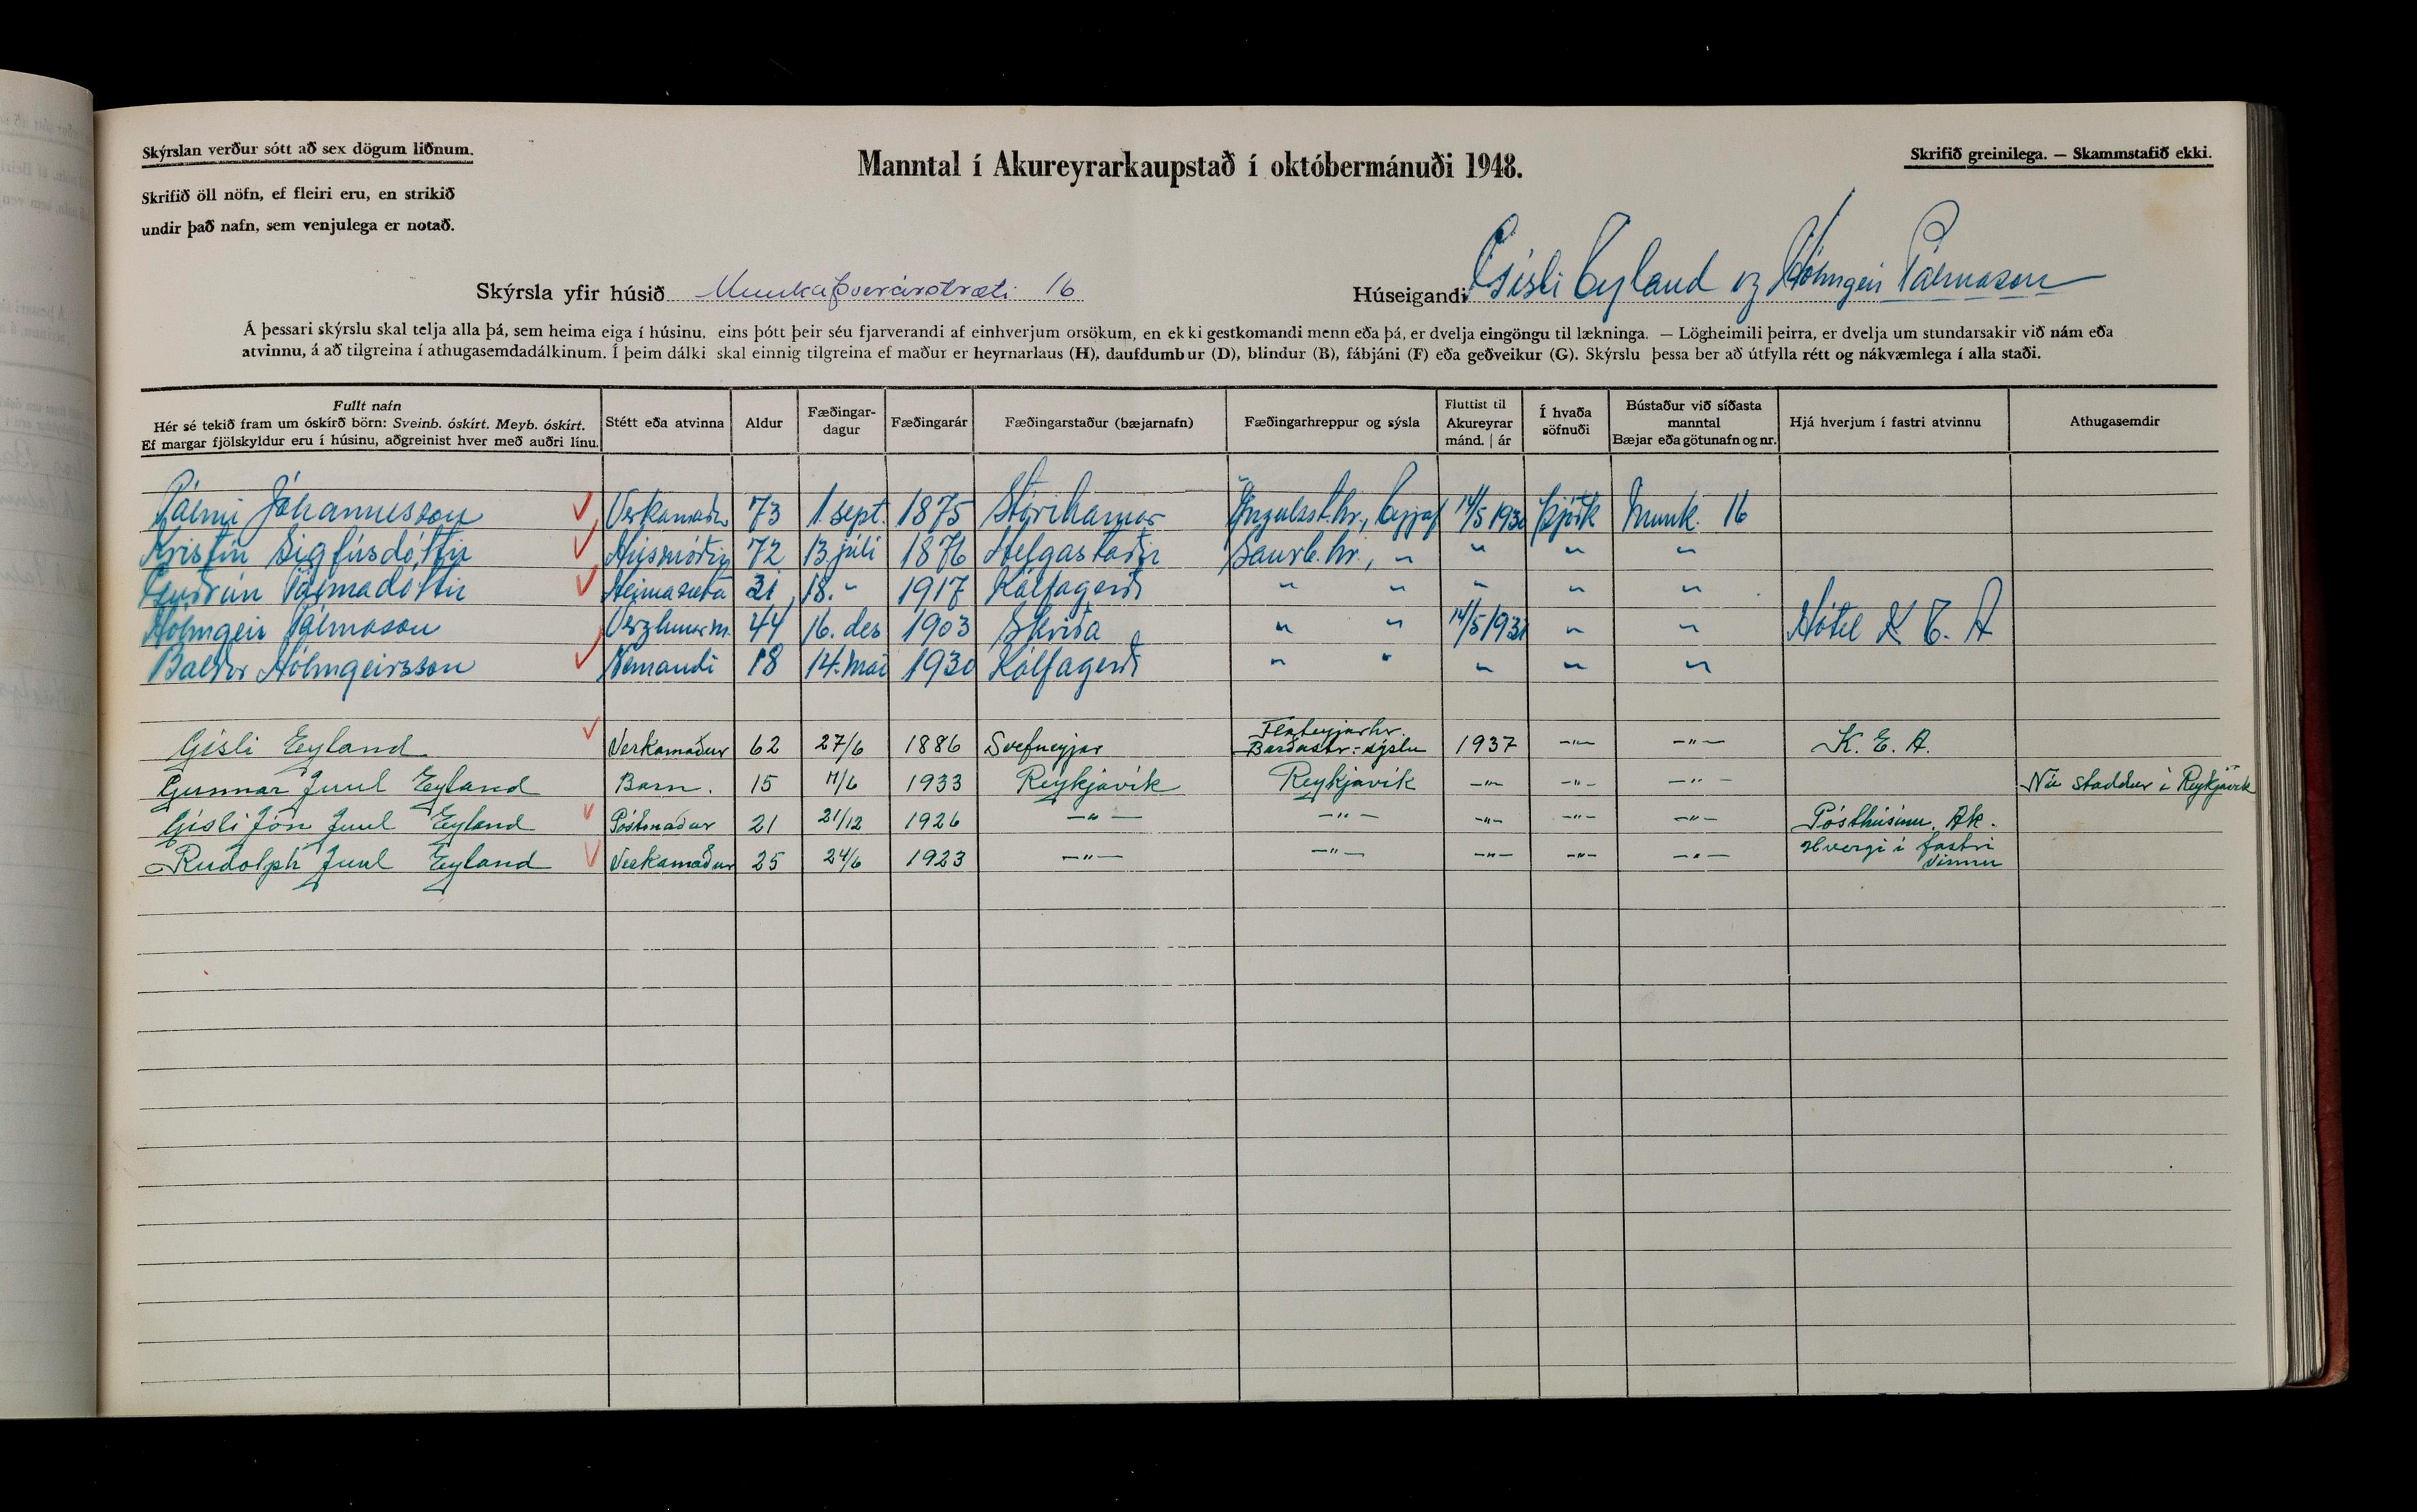 Skýrslan verður sótt að sex dögum liðnum.
Skrifið öll nöfn, ef fleiri eru, en strikið
undir það nafn, sem venjulega er notað.
Manntal í Akureyrarkaupstað í októbermánuði 1948.
Skrifið greinilega. — Skammstafið ekki.
Skýrsla yfir húsið Munkaþverárstræti 16
Húseigandi Gísli Eyland og Hólmgeir Pálmason
Á þessari skýrslu skal telja alla þá, sem heima eiga í húsinu, eins þótt þeir séu fjarverandi af einhverjum orsökum, en ekki gestkomandi menn eða þá, er dvelja eingöngu til lækninga. — Lögheimili þeirra, er dvelja um stundarsakir við nám eða
atvinnu, á að tilgreina í athugasemdadálkinum. Í þeim dálki skal einnig tilgreina ef maður er heyrnarlaus (H), daufdumbur (D), blindur (B), fábjáni (F) eða geðveikur (G). Skýrslu þessa ber að útfylla rétt og nákvæmlega í alla staði.
Fullt nafn
Hér sé tekið fram um óskírð börn: Sveinb. óskírt. Meyb. óskírt.
Ef margar fjölskyldur eru í húsinu, aðgreinist hver með auðri línu.
Stétt eða atvinna
Aldur
Fæðingar-
dagur
Fæðingarár
Fæðingarstaður (bæjarnafn)
Fæðingarhreppur og sýsla
Fluttist til
Akureyrar
mánd. | ár
Í hvaða
söfnuði
Bústaður við síðasta
manntal
Bæjar eða götunafn og nr.
Hjá hverjum í fastri atvinnu
Athugasemdir
Pálmi Jóhannesson Verkamaðr 73 1. sept. 1875 Stórihamar Öngulsst.hr., Eyjaf 14/5 1930 Þjóðk Munk. 16
Kristín Sigfúsdóttir Húsmóðir 72 13 júlí 1876 Helgastaðir Saurb.hr., " " " "
Guðrún Pálmadóttir Heimasæta 31 18. " 1917 Kálfagerði " " " " "
Hólmgeir Pálmason Verzlunarm. 44 16. des 1903 Skriða " " 14/5 1931 " " Hótel K E. A
Baldur Hólmgeirsson Nemandi 18 14. maí 1930 Kálfagerði " " " " "
Gísli Eyland Verkamaður 62 27/6 1886 Svefneyjar Flateyjarhr. Barðastr.-sýslu 1937 —"— —"— K. E. A.
Gunnar Juul Eyland Barn. 15 11/6 1933 Reykjavík Reykjavík —"— —"— —"— Nú staddur í Reykjavík
Gísli Jón Juul Eyland Póstmaður 21 21/12 1926 —"— —"— —"— —"— —"— Pósthúsinu, Ak.
Rudolph Juul Eyland Verkamaður 25 24/6 1923 —"— —"— —"— —"— —"— Hvergi í fastri vinnu